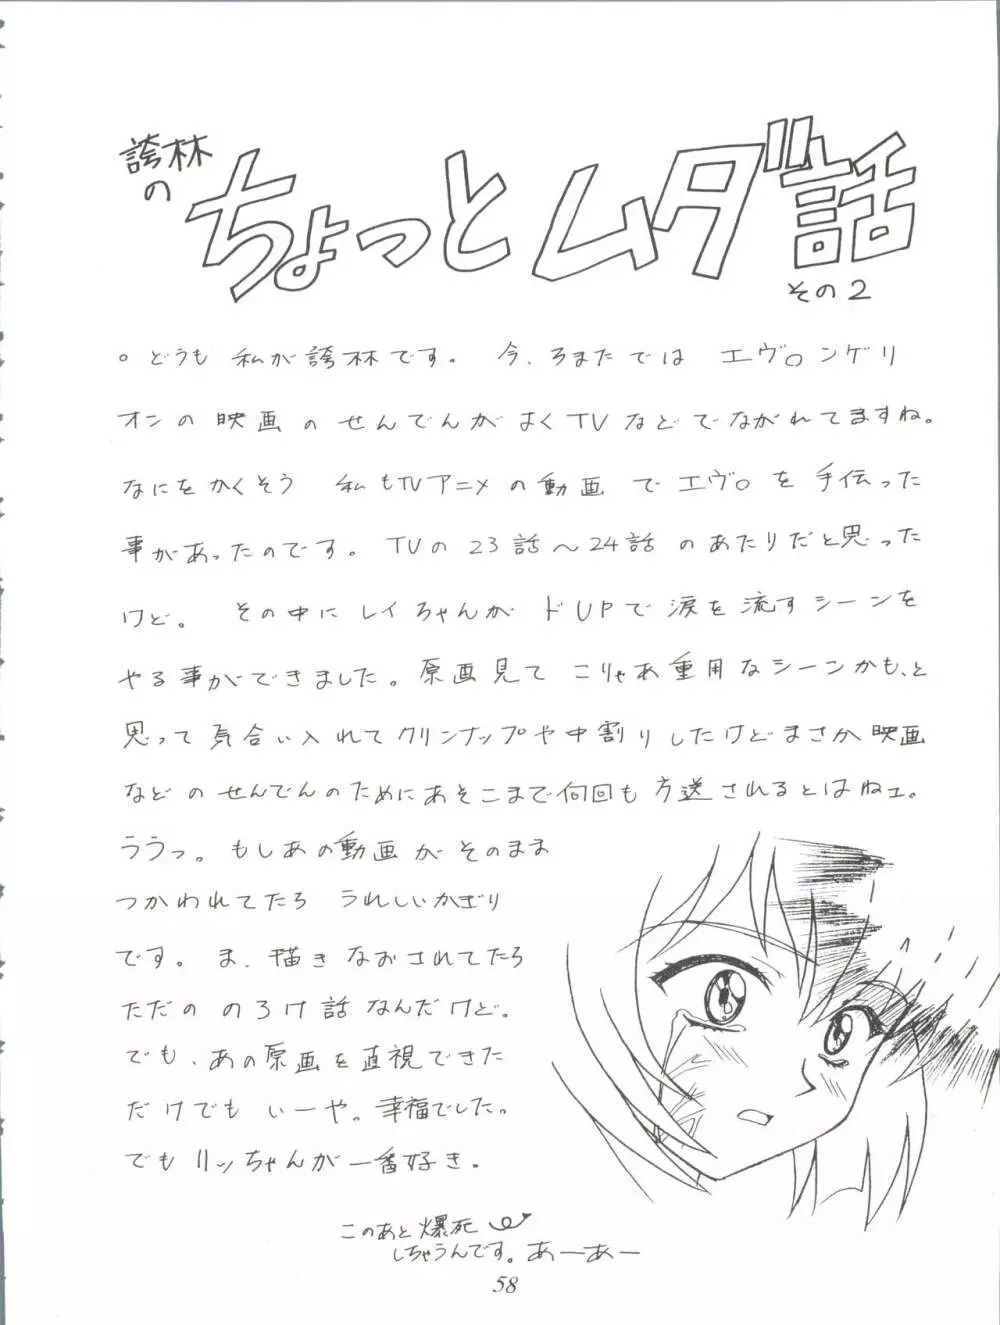 誇林の
ちょっとムダ話
その2
○どうも 私が誇林です。 今、ちまたでは エヴ○ンゲリ
オンの映画のせんでんがよくTVなどでながれてますね。
なにをかくそう 私もTVアニメの動画でエヴ○を手伝った
事があったのです。TVの23話〜24話のあたりだと思った
けど。 その中にレイちゃんがドUPで涙を流すシーンを
やる事ができました。原画見て こりゃあ重用なシーンかも、と
思って気合い入れてクリンナップや中割りしたけどまさか映画
などのせんでんのためにあそこまで何回も方送されるとはねェ。
ううっ。もしあの動画がそのまま
つかわれてたら うれしいかぎり
です。ま、描きなおされてたら
ただの のろけ話なんだけど。
でも、あの原画を直視できた
だけでも いーや。幸福でした。
でも リッちゃんが一番好き。
このあと爆死
しちゃうんです。あーあー
58